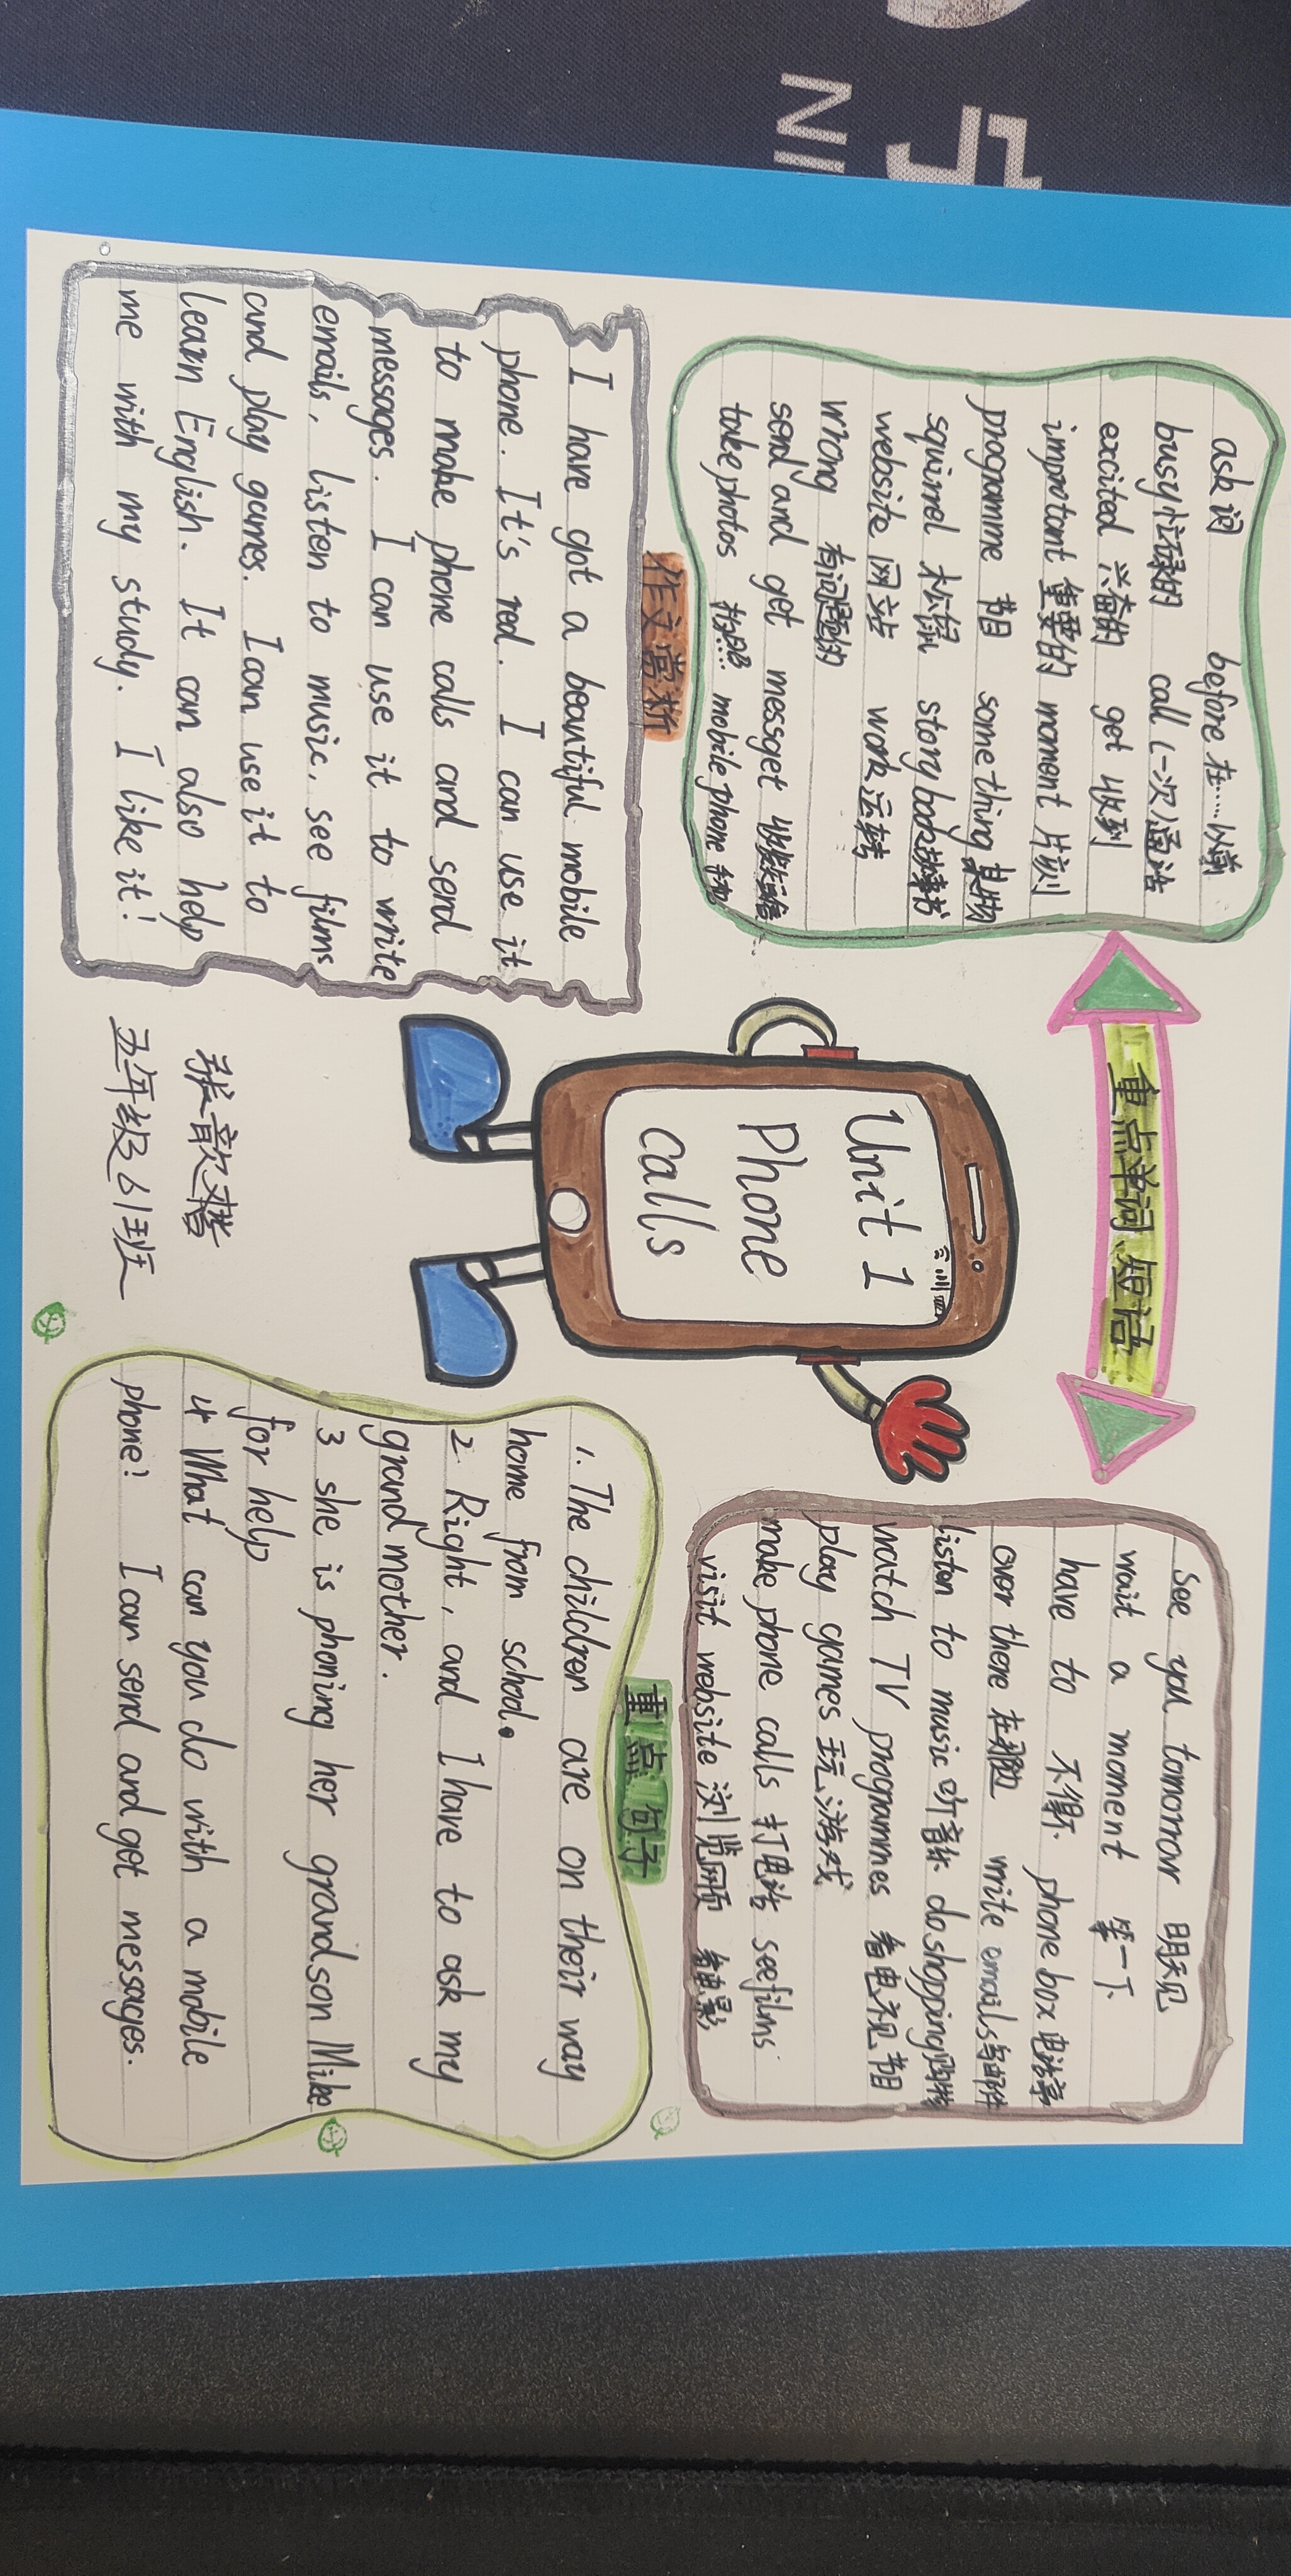 NII
重点单词、短语
ask 问 before 在……以前
busy 忙碌的 call (一次)通话
excited 兴奋的 get 收到
improtant 重要的 moment 片刻
programme 节目 something 某物
squirrel 松鼠 storybook 故事书
website 网站 work 运转
wrong 有问题的
send and get messget 收发短信
take photos 拍照…… mobile phone 手机
Unit 1
Phone
calls
see you tomorrow 明天见
wait a moment 等一下
have to 不得不 phone box 电话亭
over there 在那边 write emails 写邮件
listen to music 听音乐 do shopping 购物
watch TV programmes 看电视节目
play games 玩游戏
make phone calls 打电话 see films
visit website 浏览网页 看电影
作文赏析
I have got a beautiful mobile
phone. It's red. I can use it
to make phone calls and send
messages. I can use it to write
emails, listen to music, see films
and play games. I can use it to
learn English. It can also help
me with my study. I like it!
张歆
五年级61班
重点句子
1. The children are on their way
home from school.
2 Right, and I have to ask my
grandmother.
3 she is phoning her grandson Mike
for help
4 What can you do with a mobile
phone? I can send and get messages.